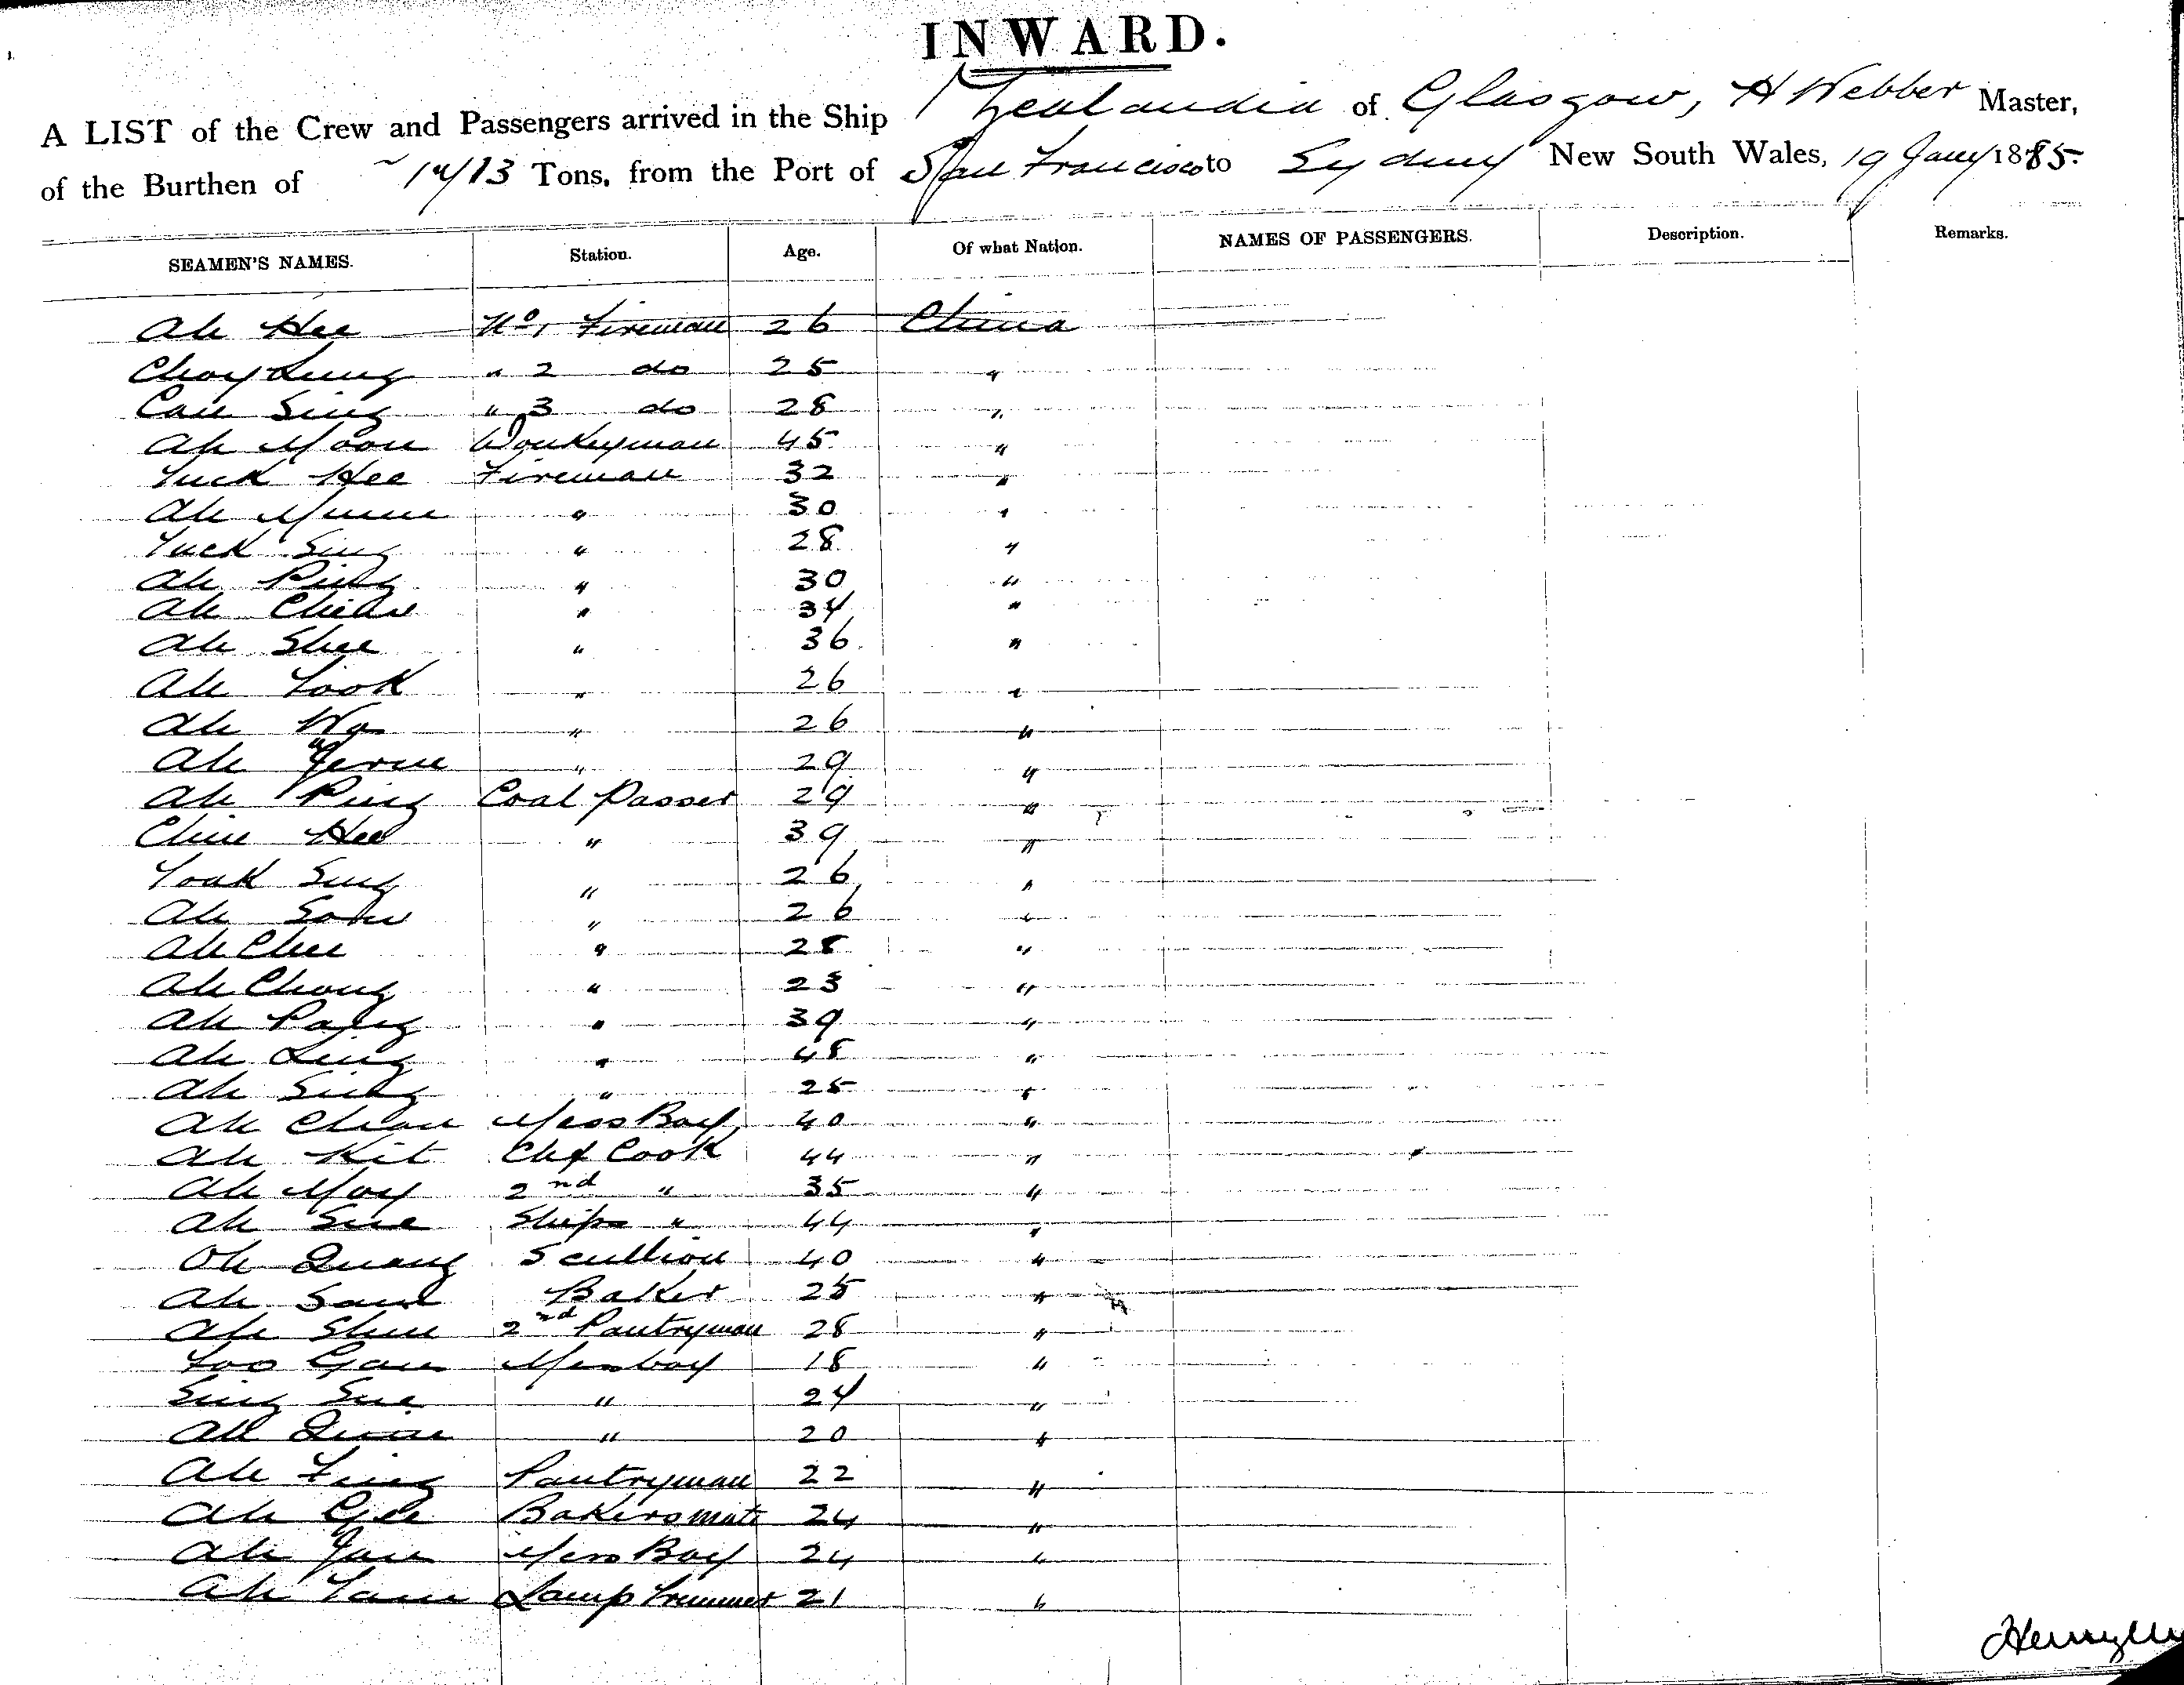 INWARD.
A LIST of the Crew and Passengers arrived in the Ship Zealandia of Glasgow, H Webber Master,
of the Burthen of Tons, from the Port of San Francisco to Sydney New South Wales, 19 Jany 1885.
SEAMEN'S NAMES. Station. Age. Of what Nation. NAMES OF PASSENGERS. Description. Remarks.
Ah Hee No 1 Fireman 26 China
Choy Lung " 2 do 25 "
Can Sing " 3 do 28 "
Ah Moon Donkeyman 45 "
Yuck Hee Fireman 32 "
Ah " 30 "
Yuck Sing " 28 "
Ah Ping " 30 "
Ah " 34 "
Ah Shee " 36 "
Ah Look " 26 "
Ah Wa " 26 "
Ah " 29 "
Ah Ping Coal Passer 29 "
Chin Hee " 39 "
Yoak Sing " 26 "
Ah " 26 "
Ah Chee " 28 "
Ah Chong " 23 "
Ah " 39 "
Ah Ling " 48 "
Ah Sing " 25 "
Ah Chan Mess Boy 40 "
Ah Kit Chf Cook 44 "
Ah Moy 2nd " 35 "
Ah Sue Ships " 44 "
Ah Quang Scullion 40 "
Ah Sam Baker 25 "
Ah Shin 2nd Pantryman 28 "
Gan Messboy 18 "
Sing Sue " 24 "
Ah " 20 "
Ah Pantryman 22 "
Ah Gee Bakers mate 24 "
Ah Yan Mess Boy 24 "
Ah Lamp Trimmer 21 "